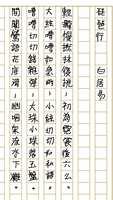 琵琶行　白居易
輕攏慢撚抹復挑，初為霓裳後六么。
大絃嘈嘈如急雨，小絃切切如私語。
嘈嘈切切錯雜彈，大珠小珠落玉盤。
間關鶯語花底滑，幽咽泉流水下灘。